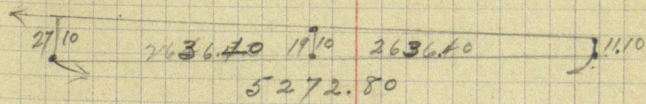 27 10 2636.40 19 10 2636.40 11.10
5272.80